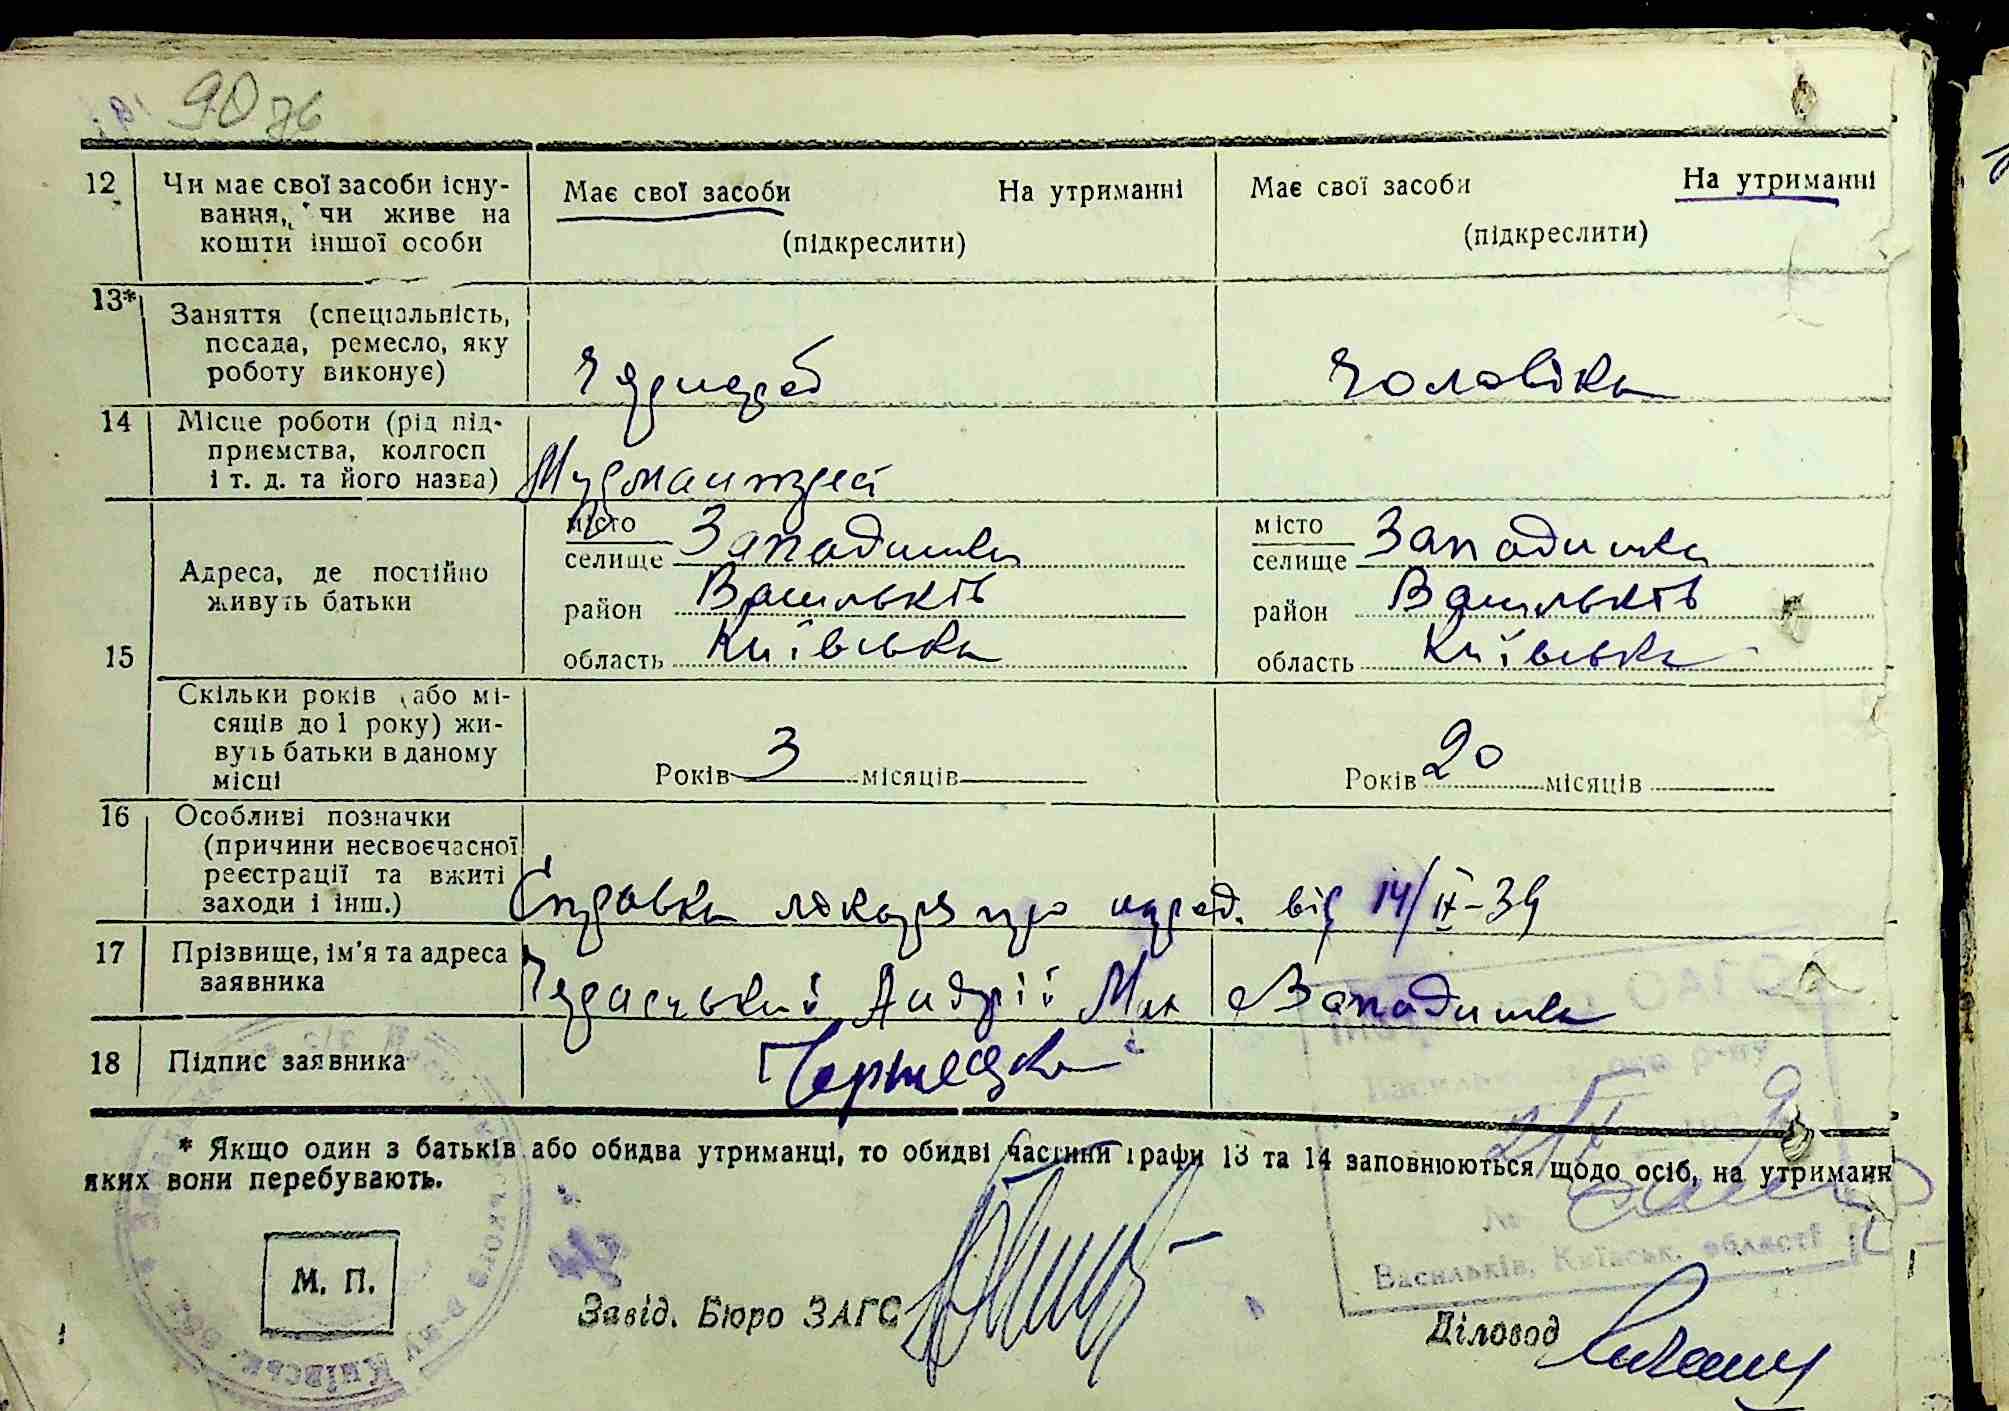 90 зв
12 Чи має свої засоби існу-
вання, чи живе на
кошти іншої особи
Має свої засоби На утриманні
(підкреслити)
Має свої засоби На утриманні
(підкреслити)
13* Заняття (спеціальність,
посада, ремесло, яку
роботу виконує)
Чорнороб
Чоловіка
14 Місце роботи (рід під-
приємства, колгосп
і т. д. та його назва)
15 Адреса, де постійно
живуть батьки
місто
селище Западинка
район Васильків
область Київська
місто
селище Западинка
район Васильків
область Київська
Скільки років (або мі-
сяців до 1 року) жи-
вуть батьки в даному
місці
Років 3 місяців
Років 20 місяців
16 Особливі позначки
(причини несвоєчасної
реєстрації та вжиті
заходи і інш.)
Справка лікаря про народ. від 14/IX-39
17 Прізвище, ім'я та адреса
заявника
Андрій Мик Западинка
18 Підпис заявника
* Якщо один з батьків або обидва утриманці, то обидві частини графи 13 та 14 заповнюються щодо осіб, на утриманн
яких вони перебувають.
М. П.
Завід. Бюро ЗАГС
Діловод
Васильків, Київськ. області